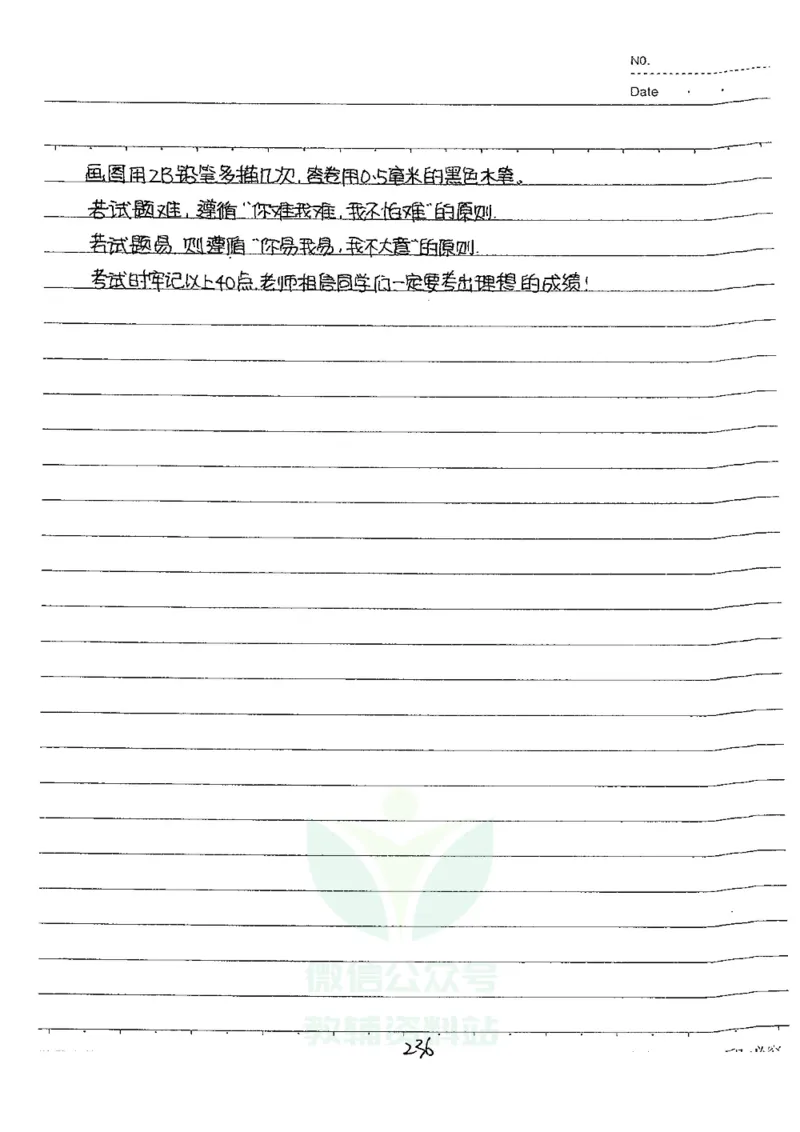 NO.
Date
画图用2B铅笔多描几次，答卷用0.5毫米的黑色水笔。
若试题难，遵循“你难我难，我不怕难”的原则.
若试题易，则遵循“你易我易，我不大意”的原则.
考试时牢记以上40点，老师相信同学们一定要考出理想的成绩！
微信公众号
教辅资料站
236